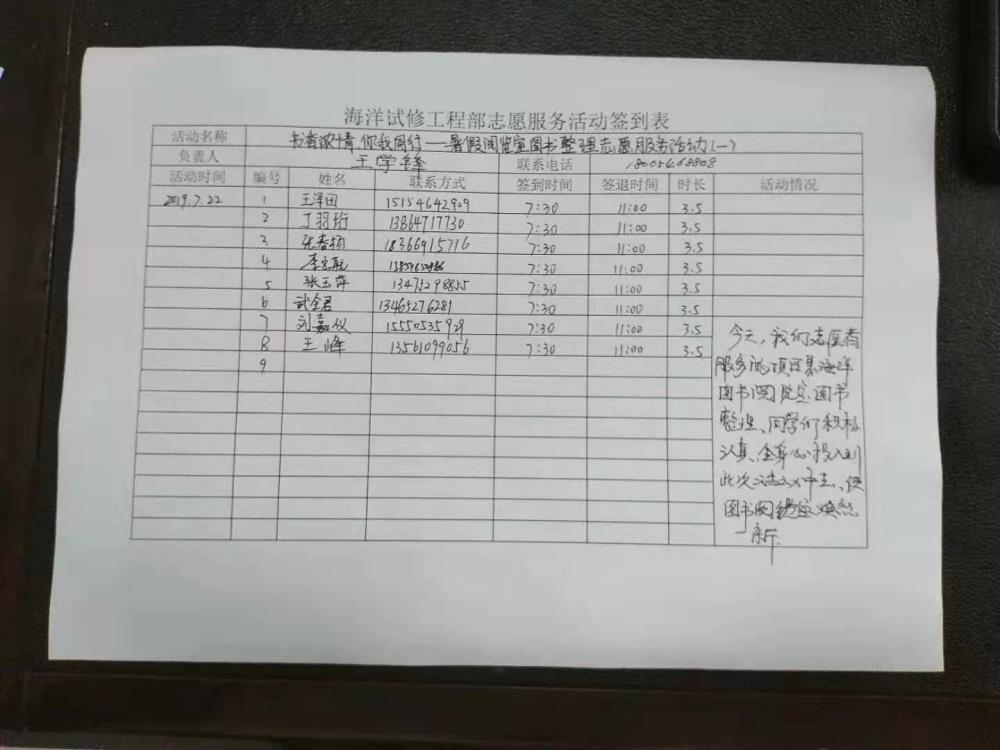 海洋试修工程部志愿服务活动签到表
活动名称 书香浓情 你我同行——暑假阅览室图书整理志愿服务活动(一)
负责人 王学锋 联系电话 18005468808
活动时间 编号 姓名 联系方式 签到时间 签退时间 时长 活动情况
2019.7.22 1 王泽田 15154642909 7:30 11:00 3.5
2 丁羽珩 13864717730 7:30 11:00 3.5
3 张春扬 18366915716 7:30 11:00 3.5
4 7:30 11:00 3.5
5 张玉萍 7:30 11:00 3.5
6 武全君 13465276281 7:30 11:00 3.5
7 刘嘉仪 7:30 11:00 3.5
8 王峰 13561099056 7:30 11:00 3.5
9
今天,我们志愿者
服务的项目是海洋
图书阅览室图书
整理、同学们积极
认真、全身心投入到
此次活动中去、使
图书阅览室焕然
一新.